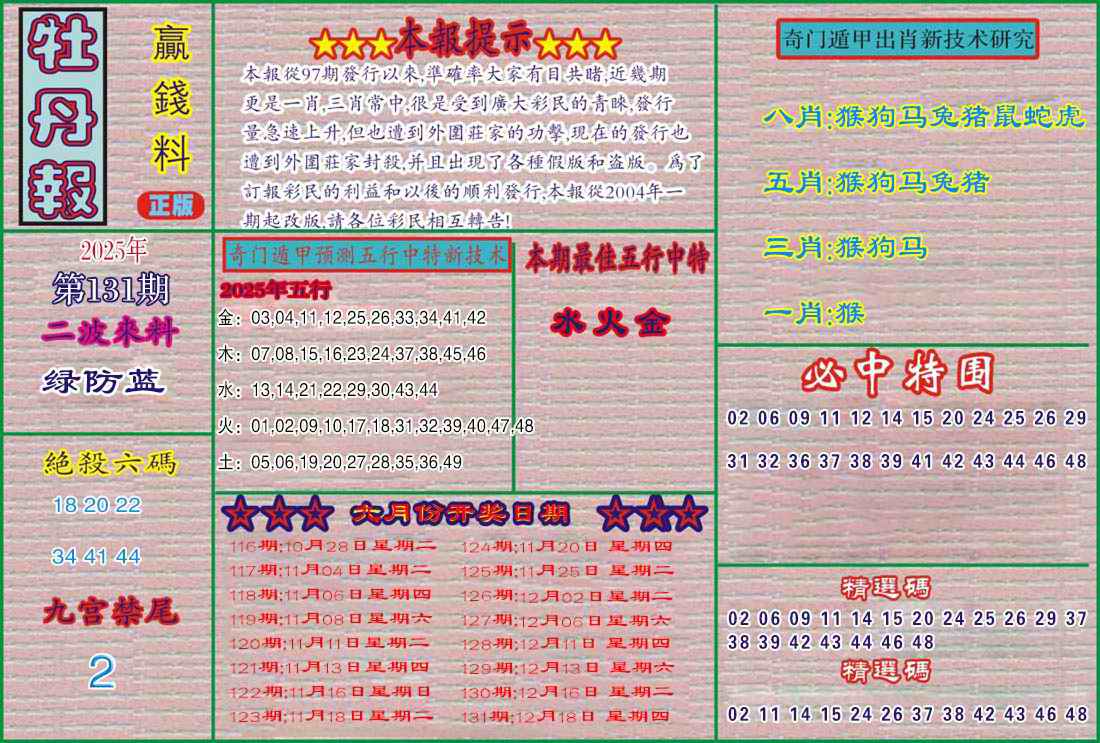 牡丹報
贏錢料
正版
2025年
第131期
二波來料
绿防蓝
絕殺六碼
18 20 22
34 41 44
九宫禁尾
2
★★★本報提示★★★
本報從97期發行以來,準確率大家有目共睹,近幾期
更是一肖,三肖常中,很是受到廣大彩民的青睞,發行
量急速上升,但也遭到外圍莊家的功擊,現在的發行也
遭到外圍莊家封殺,并且出現了各種假版和盗版。爲了
訂報彩民的利益和以後的順利發行,本報從2004年一
期起改版,請各位彩民相互轉告!
奇门遁甲预测五行中特新技术
2025年五行
金：03,04,11,12,25,26,33,34,41,42
木：07,08,15,16,23,24,37,38,45,46
水：13,14,21,22,29,30,43,44
火：01,02,09,10,17,18,31,32,39,40,47,48
土：05,06,19,20,27,28,35,36,49
本期最佳五行中特
水火金
☆☆☆ 六月份开奖日期 ☆☆☆
116期;10月28日星期二
117期;11月04日星期二
118期;11月06日星期四
119期;11月08日星期六
120期;11月11日星期二
121期;11月13日星期四
122期;11月16日星期日
123期;11月18日星期二
124期;11月20日 星期四
125期;11月25日 星期二
126期;12月02日 星期二
127期;12月06日 星期六
128期;12月11日 星期四
129期;12月13日 星期六
130期;12月16日 星期二
131期;12月18日 星期四
奇门遁甲出肖新技术研究
八肖:猴狗马兔猪鼠蛇虎
五肖:猴狗马兔猪
三肖:猴狗马
一肖:猴
必中特围
02 06 09 11 12 14 15 20 24 25 26 29
31 32 36 37 38 39 41 42 43 44 46 48
精選碼
02 06 09 11 14 15 20 24 25 26 29 37
38 39 42 43 44 46 48
精選碼
02 11 14 15 24 26 37 38 42 43 46 48